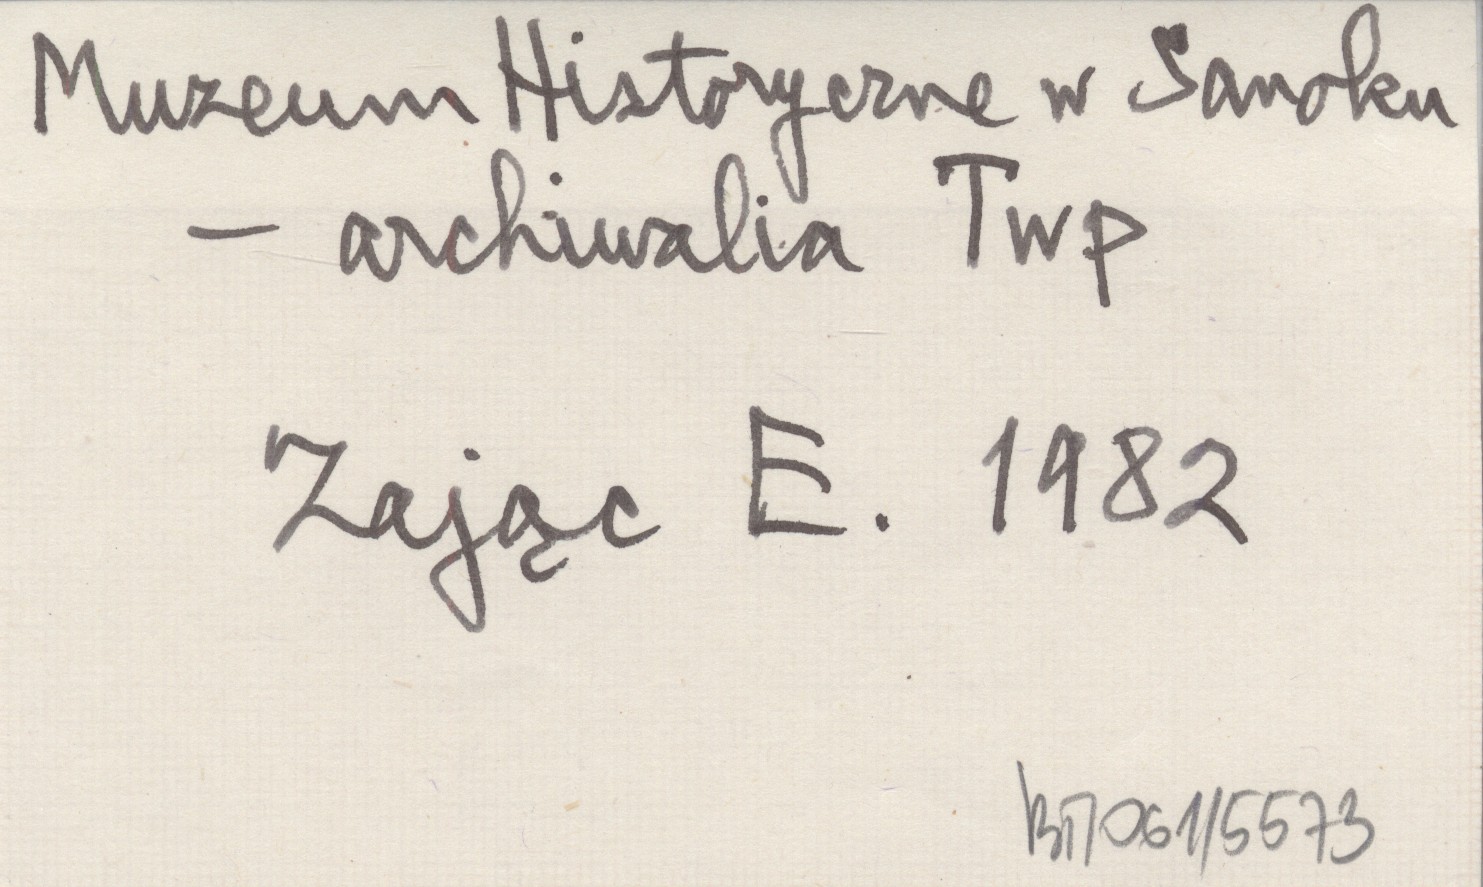 Muzeum Historyczne w Sanoku
– archiwalia Twp
Zając E. 1982
BT/061/5573